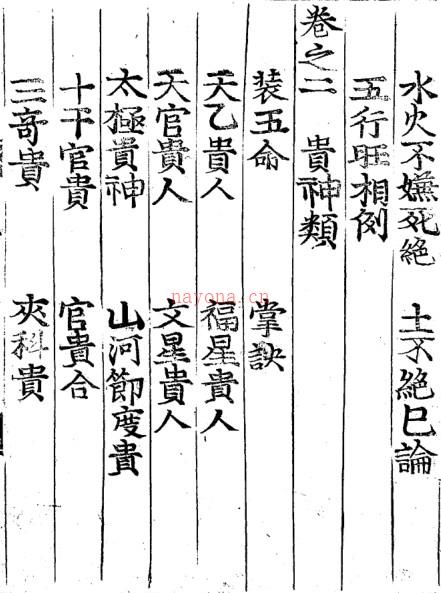 水火不嫌死絕　土不絕巳論
五行旺相例
卷之二　貴神類
裝五命　掌訣
天乙貴人　福星貴人
天官貴人　文星貴人
太極貴神　山河節度貴
十干官貴　官貴合
三奇貴　夾科貴
nayona.cn